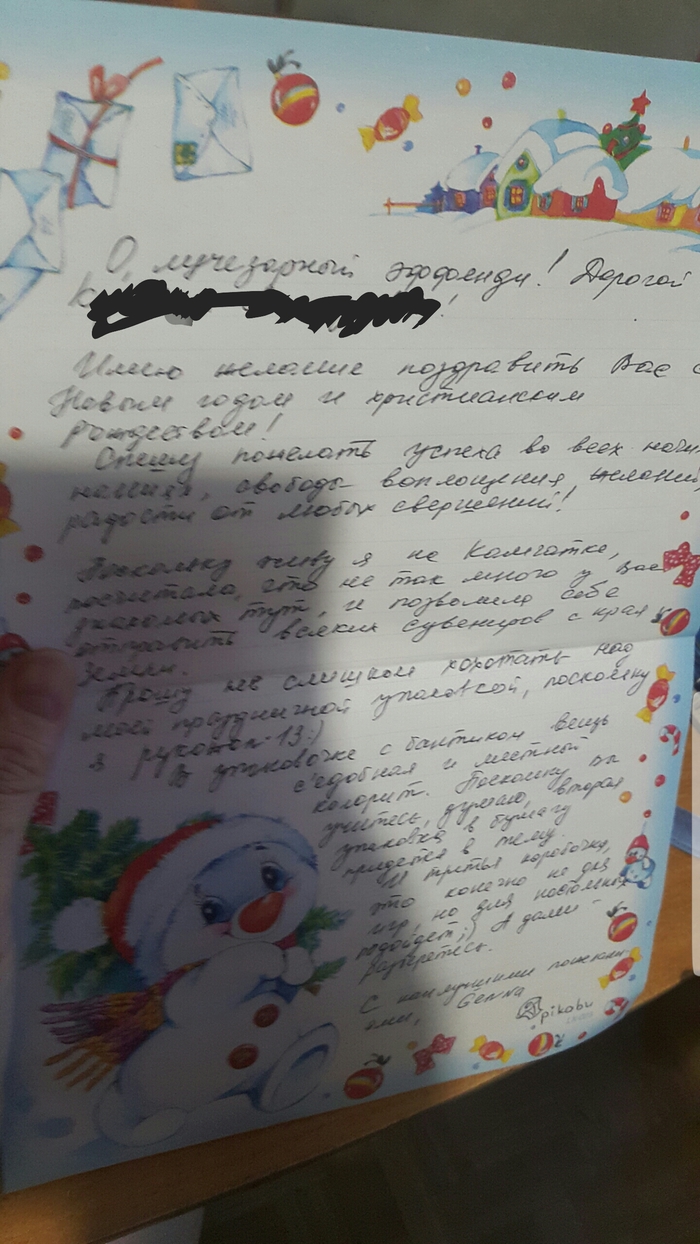 О, лучезарный эффенди! Дорогой
К
!
Имею желание поздравить Вас с
Новым годом и христианским
рождеством!
Спешу пожелать успеха во всех начи-
наниях, свободы воплощения желаний,
радости от любых свершений!
Поскольку живу я на Камчатке,
посчитала, что не так много у вас
знакомых тут, и позволила себе
отправить всяких сувениров с края
Земли.
Прошу не слишком хохотать над
моей праздничной упаковкой, поскольку
я рукожоп 13:)
В упаковочке с бантиком вещь
съедобная и местный
колорит. Поскольку вы
учитесь, думаю, вторая
упаковка в бумагу
придется в тему.
И третья коробочка,
это конечно не для
игр, но для настольных
подойдет;) А далее –
разберетесь.
С наилучшими пожелани-
ями, Genna
pikabu